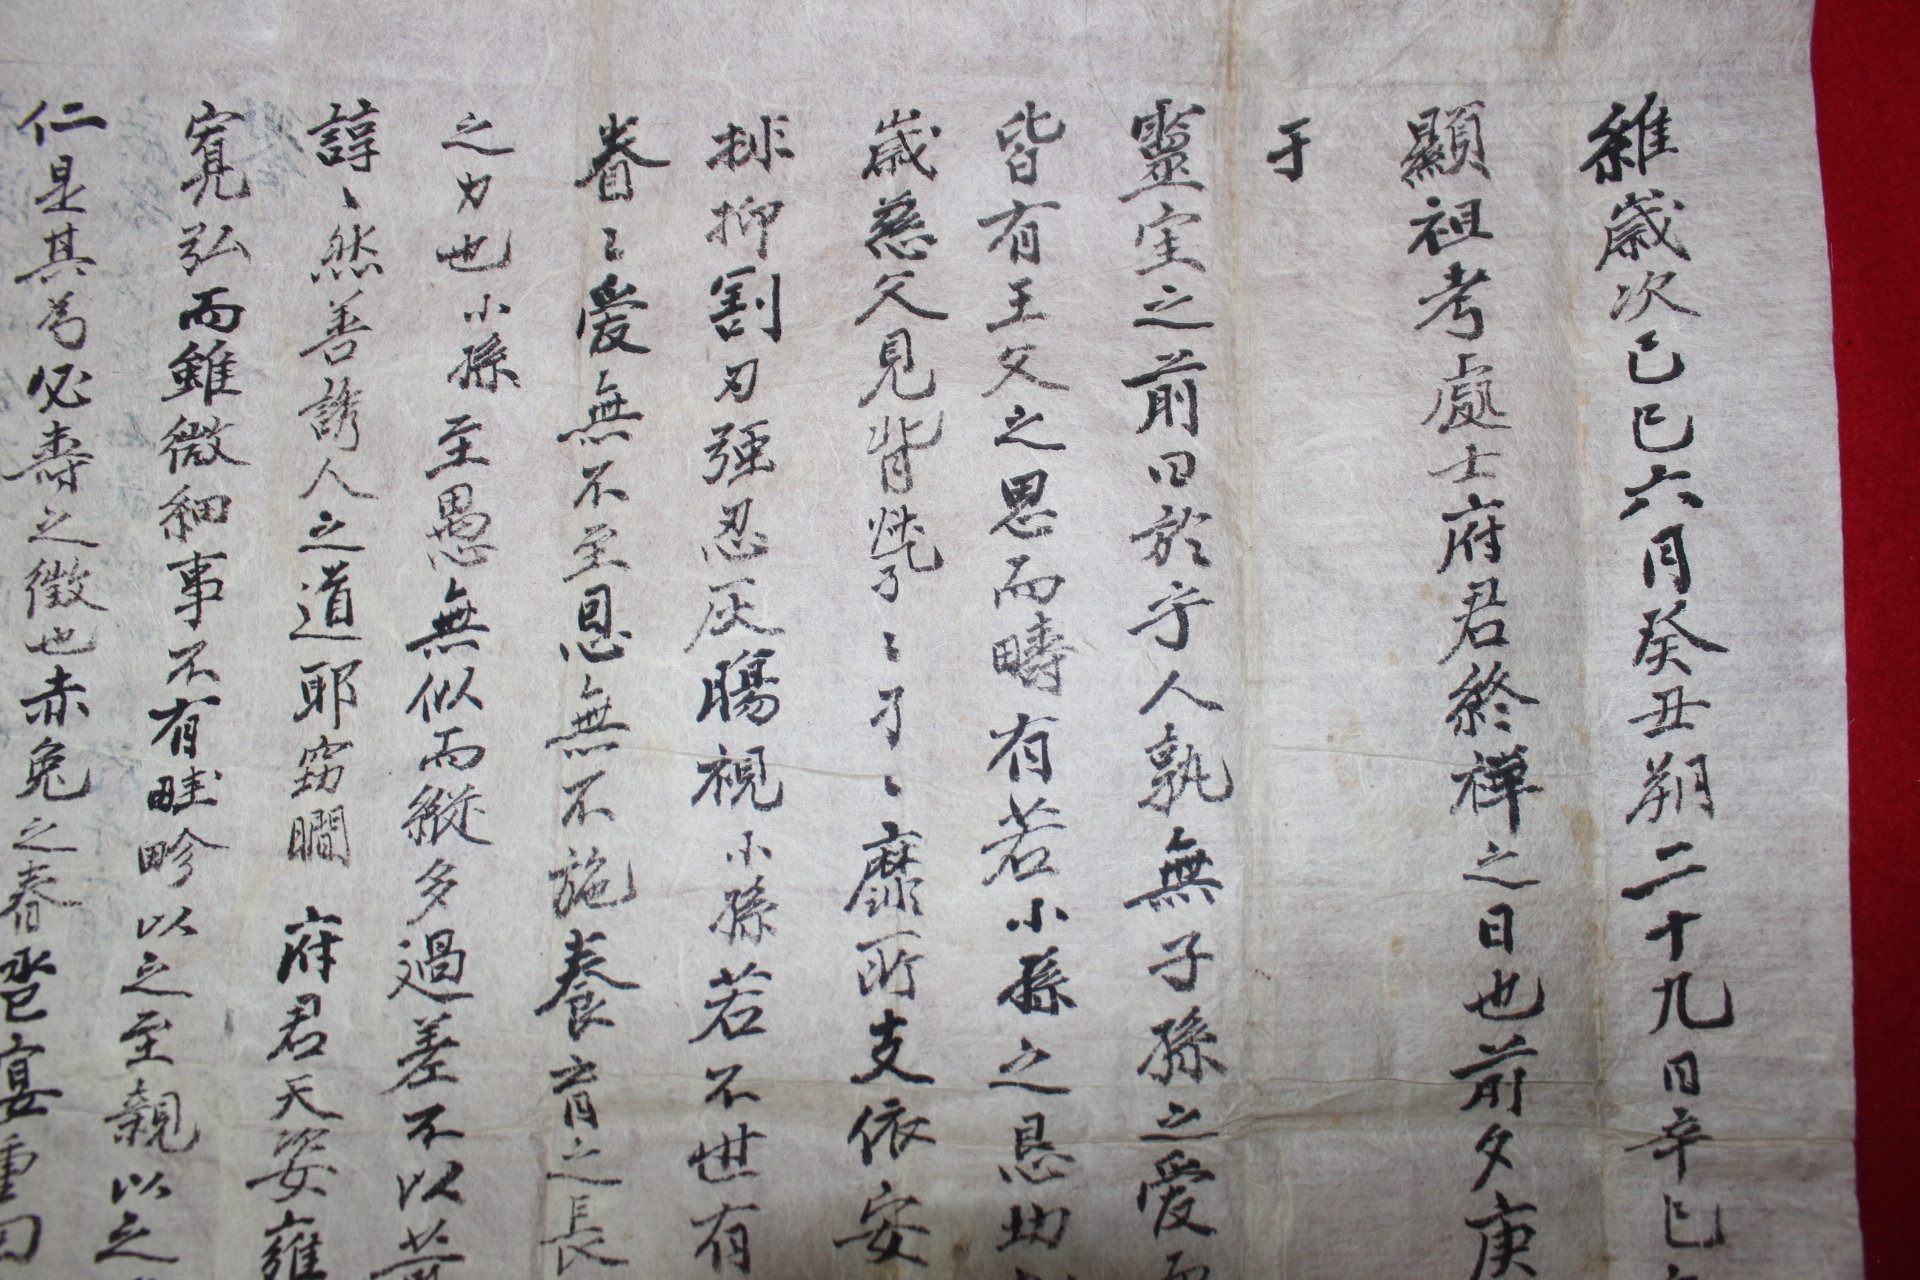 維歲次己巳六月癸丑朔二十九日辛巳
顯祖考處士府君終禫之日也前夕庚
于
靈室之前曰於乎人孰無子孫之愛而
皆有王父之恩而疇有若小孫之恳
歲慈父見背煢〻孑〻靡所支依安
排抑割刃强忍灰腸視小孫若不世有
眷〻愛無不至恩無不施養育之長
之力也小孫至愚無似而縱多過差不以
諄〻然善誘人之道耶竊瞯府君天姿雍
寬弘而雖微細事不有畦畛以之至親以之
仁是其爲必壽之徵也赤兔之春宴重回